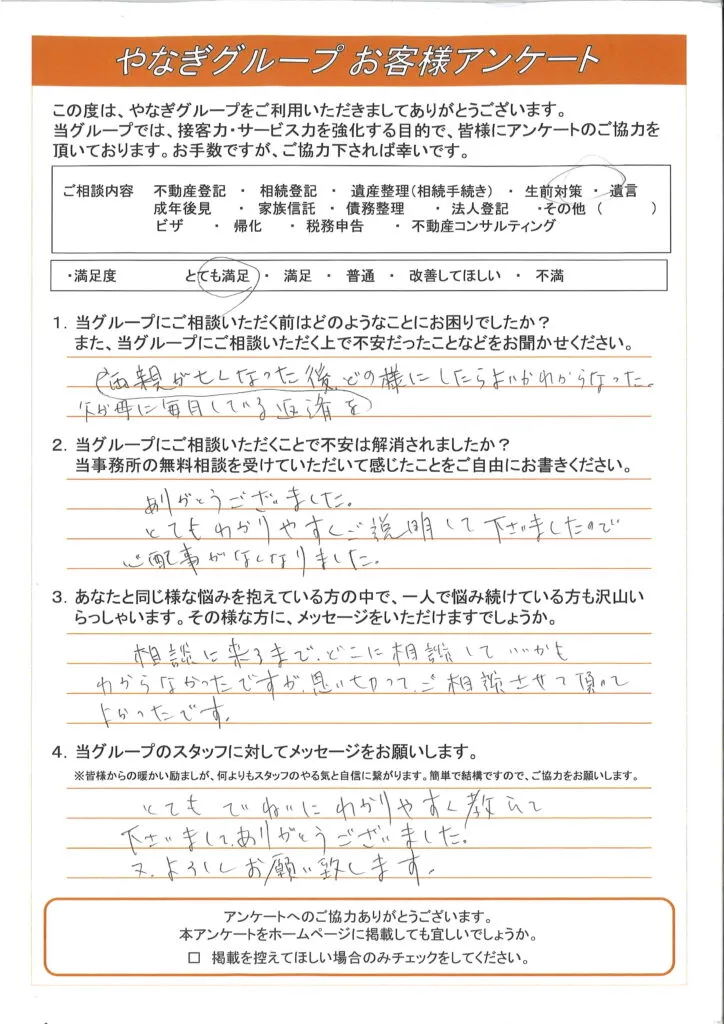 やなぎグループ お客様アンケート
この度は、やなぎグループをご利用いただきましてありがとうございます。
当グループでは、接客力・サービス力を強化する目的で、皆様にアンケートのご協力を
頂いております。お手数ですが、ご協力下されば幸いです。
ご相談内容 不動産登記 ・ 相続登記 ・ 遺産整理(相続手続き) ・ 生前対策 ・ 遺言
成年後見 ・ 家族信託 ・ 債務整理 ・ 法人登記 ・その他 ( )
ビザ ・ 帰化 ・ 税務申告 ・ 不動産コンサルティング
・満足度 とても満足 ・ 満足 ・ 普通 ・ 改善してほしい ・ 不満
1. 当グループにご相談いただく前はどのようなことにお困りでしたか?
また、当グループにご相談いただく上で不安だったことなどをお聞かせください。
両親が亡くなった後、どの様にしたらよいかわからなった。
父が母に毎月している返済を
2. 当グループにご相談いただくことで不安は解消されましたか?
当事務所の無料相談を受けていただいて感じたことをご自由にお書きください。
ありがとうございました。
とてもわかりやすくご説明して下さいましたので
心配事がなくなりました。
3. あなたと同じ様な悩みを抱えている方の中で、一人で悩み続けている方も沢山い
らっしゃいます。その様な方に、メッセージをいただけますでしょうか。
相談に来るまで、どこに相談していいかも
わからなかったですが、思い切って、ご相談させて頂いて
よかったです。
4. 当グループのスタッフに対してメッセージをお願いします。
※皆様からの暖かい励ましが、何よりもスタッフのやる気と自信に繋がります。簡単で結構ですので、ご協力をお願いします。
とても ていねいに わかりやすく教えて
下さいまして、ありがとうございました。
又、よろしくお願い致します。
アンケートへのご協力ありがとうございます。
本アンケートをホームページに掲載しても宜しいでしょうか。
□ 掲載を控えてほしい場合のみチェックをしてください。